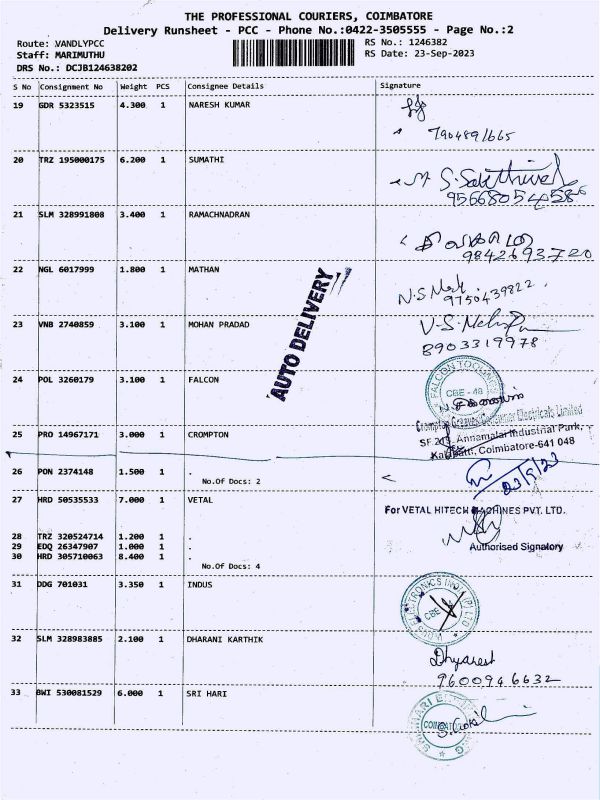 THE PROFESSIONAL COURIERS, COIMBATORE
Delivery Runsheet - PCC - Phone No.:0422-3505555 - Page No.:2
Route: VANDLYPCC
Staff: MARIMUTHU
DRS No.: DCJB124638202
RS No.: 1246382
RS Date: 23-Sep-2023
S No Consignment No Weight PCS Consignee Details Signature
19 GDR 5323515 4.300 1 NARESH KUMAR
7904891665
20 TRZ 195000175 6.200 1 SUMATHI
S. Sakthivel
95668054586
21 SLM 328991808 3.400 1 RAMACHNADRAN
9842693720
22 NGL 6017999 1.800 1 MATHAN
9750439822
AUTO DELIVERY
23 VNB 2740859 3.100 1 MOHAN PRADAD
8903319978
24 POL 3260179 3.100 1 FALCON
FALCON TOOLINGS
CBE - 48
25 PRO 14967171 3.000 1 CROMPTON
Crompton Greaves Consumer Electricals Limited
Annamalai Industrial Park,
Coimbatore-641 048
26 PON 2374148 1.500 1 .
No.Of Docs: 2
23/9/23
27 HRD 50535533 7.000 1 VETAL
For VETAL HITECH MACHINES PVT. LTD.
28 TRZ 320524714 1.200 1 .
29 EDQ 26347907 1.000 1 .
30 HRD 305710063 8.400 1 .
No.Of Docs: 4
Authorised Signatory
31 DDG 701031 3.350 1 INDUS
32 SLM 328983885 2.100 1 DHARANI KARTHIK
9600946632
33 BWI 530081529 6.000 1 SRI HARI